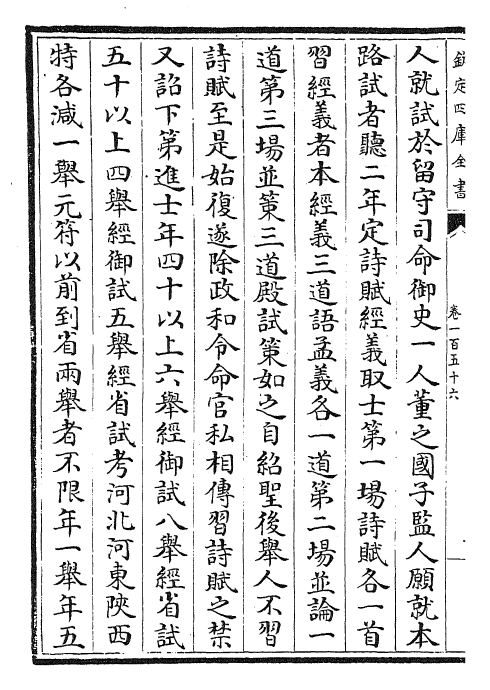 欽定四庫全書
卷一百五十六
人就試於留守司命御史一人董之國子監人願就本
路試者聽二年定詩賦經義取士第一場詩賦各一首
習經義者本經義三道語孟義各一道第二場並論一
道第三場並策三道殿試策如之自紹聖後舉人不習
詩賦至是始復遂除政和令命官私相傳習詩賦之禁
又詔下第進士年四十以上六舉經御試八舉經省試
五十以上四舉經御試五舉經省試考河北河東陝西
特各減一舉元符以前到省兩舉者不限年一舉年五